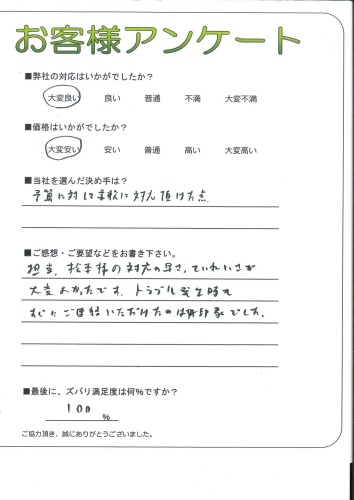 お客様アンケート
■弊社の対応はいかがでしたか?
大変良い 良い 普通 不満 大変不満
■価格はいかがでしたか?
大変安い 安い 普通 高い 大変高い
■当社を選んだ決め手は?
予算に対して柔軟に対応頂けた点
■ご感想・ご要望などをお書き下さい。
担当、松本様の対応の早さ、ていねいさが
大変よかったです。トラブル発生時も
すぐにご連絡いただけたのは好印象でした。
■最後に、ズバリ満足度は何%ですか?
100
%
ご協力頂き、誠にありがとうございました。